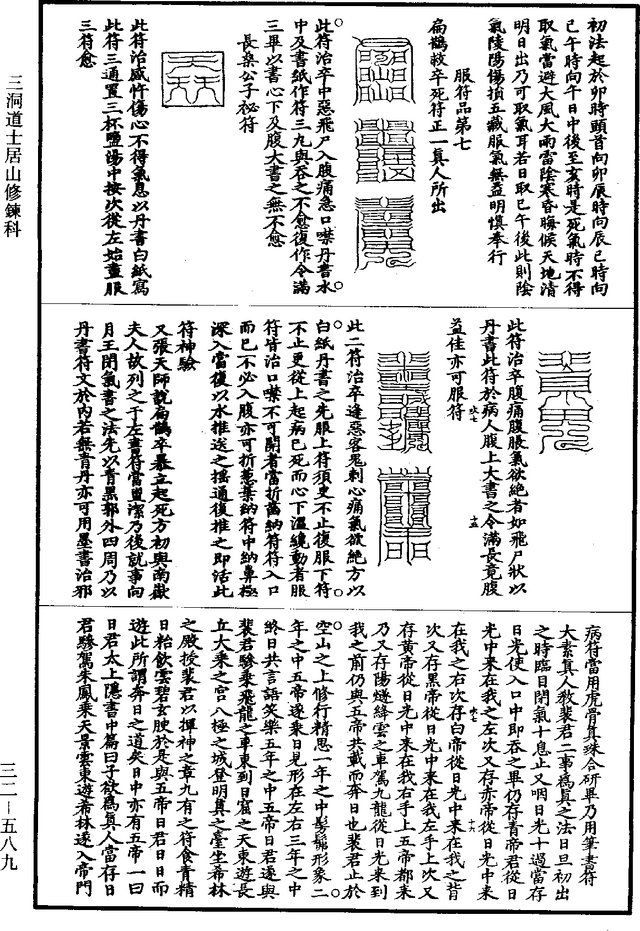 初法起於卯時頭首向卯辰時向辰巳時向
巳午時向午日中後至亥時是死氣時不得
取氣當避大風大雨雷陰寒昏晦候天地清
明日出乃可取氣耳若日取巳午後此則陰
氣陵陽傷損五藏服氣無益明慎奉行
服符品第七
扁鵲救卒死符正一真人所出
此符治卒中惡飛尸入腹痛急口噤丹書水
中及書紙作符三九與吞之不愈復作令滿
三畢以書心下及腹大書之無不愈
長桑公子祕符
此符治感忤傷心不得氣息以丹書白紙寫
此符三通置三杯鹽湯中按次從左始盡服
三符愈
此符治卒腹痛腹脹氣欲絕者如飛尸狀以
丹書此符於病人腹上大書之令滿長竟腹
益佳亦可服符
此二符治卒逢惡客鬼刺心痛氣欲絕方以
白紙丹書之先服上符須臾不止復服下符
不止更從上起病已死而心下溫纔動者服
符皆治口噤不可開者當折齒納符符入口
而已不必入腹亦可折葱葉納符中納鼻極
深入當復以水推送之搖通復推之即活此
符神驗
又張天師說扁鵲卒暴立起死方初與南嶽
夫人故列之于左畫符當盥潔乃後就事向
月王閉氣書之法先以青黑郭外四周乃以
丹書符文於內若無青丹亦可用墨書治邪
病符當用虎骨真珠合研畢乃用筆書符
大素真人教裴君二事爲真之法旦初出
之時臨目閉氣十息止又咽日光十過當存
日光使入口中即吞之畢仍存青帝君從日
光中來在我之左次又存赤帝從日光中來
在我之右次存白帝從日光中來在我之背
次又存黑帝從日光中來在我左手上次又
存黃帝從日光中來在我右手上五帝都來
乃又存陽燧絳雲之車駕九龍從日光來到
我之前仍與五帝共載而奔日也裴君止於
空山之上修行精思一年之中髣髴形象二
年之中五帝逐乘日見形在左右三年之中
終日共言語笑樂五年之中五帝日君遂與
裴君驂乘飛龍之車東到日窟之天東遊長
丘大乘之宮八極之城登明真之臺坐希林
之殿授裴君以揮神之章九有之符食青精
日粭飲雲碧玄腴於是與五帝日君日日而
遊此所謂奔日之道矣日中亦有五帝一曰
日君太上隱書中篇曰子欲爲真人當存日
君驂駕朱鳳乘天景雲東遊希林遂入帝門
三洞道士居山修鍊科
三二—五八九